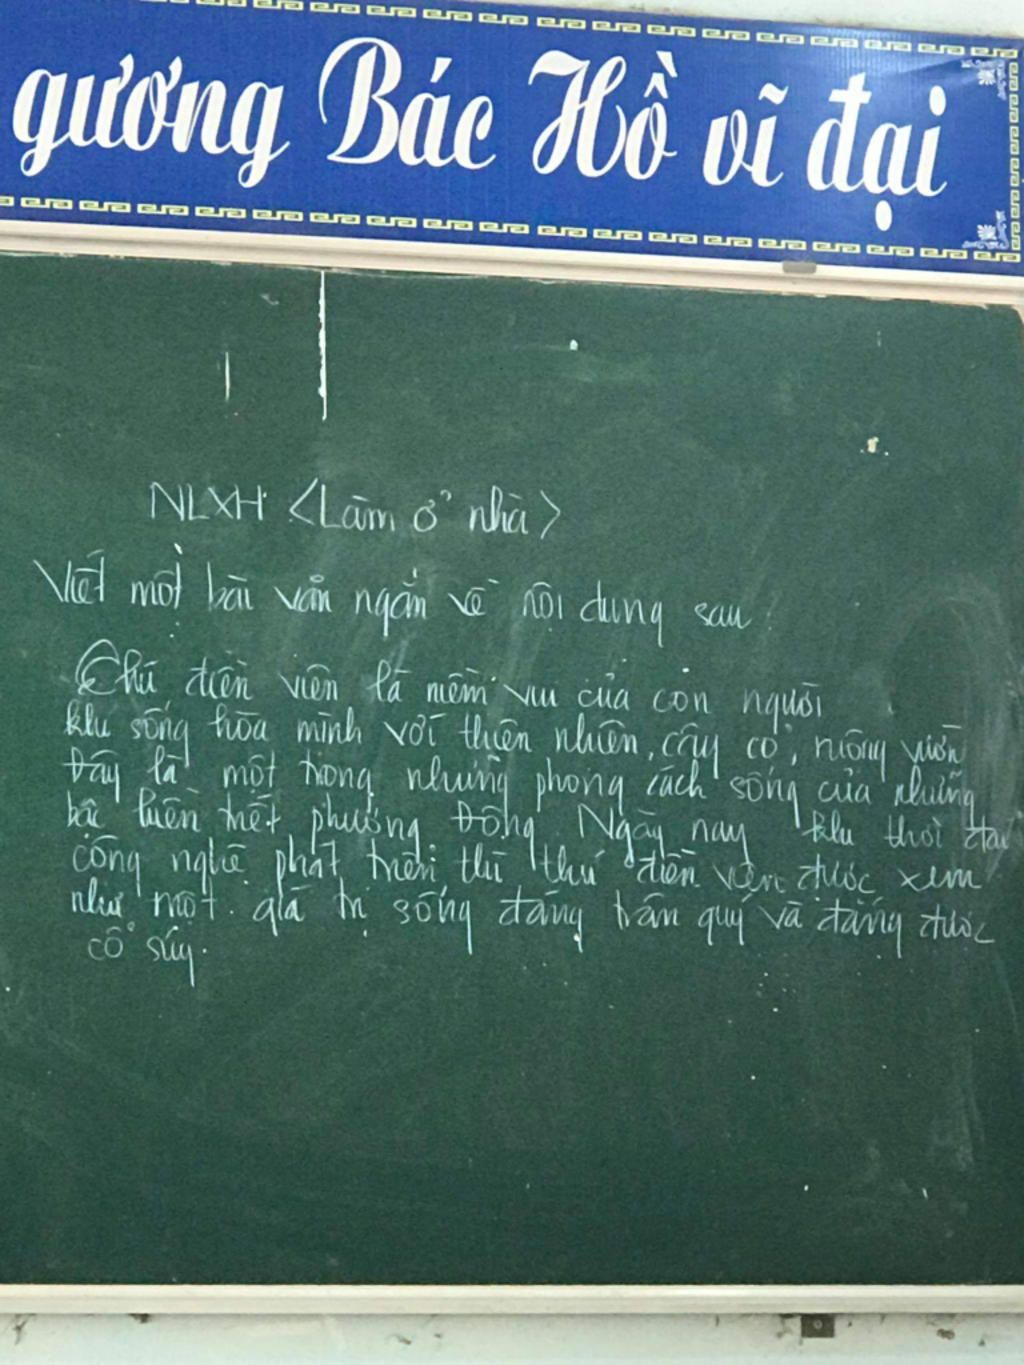 gương Bác Hồ vĩ đại
NLXH <Làm ở nhà>
Viết một bài văn ngắn về nội dung sau:
Thú điền viên là niềm vui của con người
khi sống hòa mình với thiên nhiên, cây cỏ, ruộng vườn
Đây là một trong những phong cách sống của những
bậc hiền triết phương Đông. Ngày nay khi thời đại
công nghệ phát triển thì thú điền viên được xem
như một giá trị sống đáng trân quý và đáng được
cổ súy.